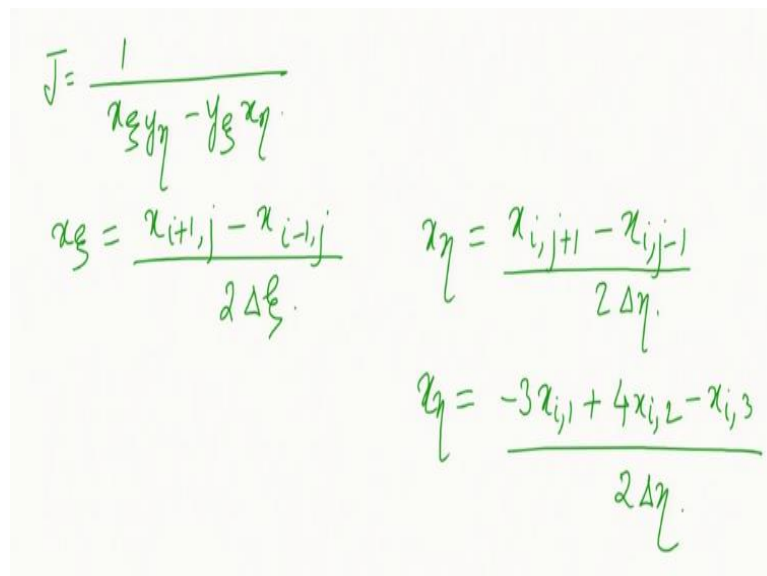 J = 1 / (x_ξ y_η - y_ξ x_η)
x_ξ = (x_{i+1,j} - x_{i-1,j}) / (2Δξ)
x_η = (x_{i,j+1} - x_{i,j-1}) / (2Δη)
x_η = (-3x_{i,1} + 4x_{i,2} - x_{i,3}) / (2Δη)